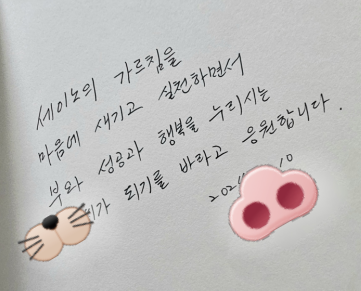 세이노의 가르침을
마음에 새기고 실천하면서
부와 성공과 행복을 누리시는
씨가 되기를 바라고 응원합니다.
202 10